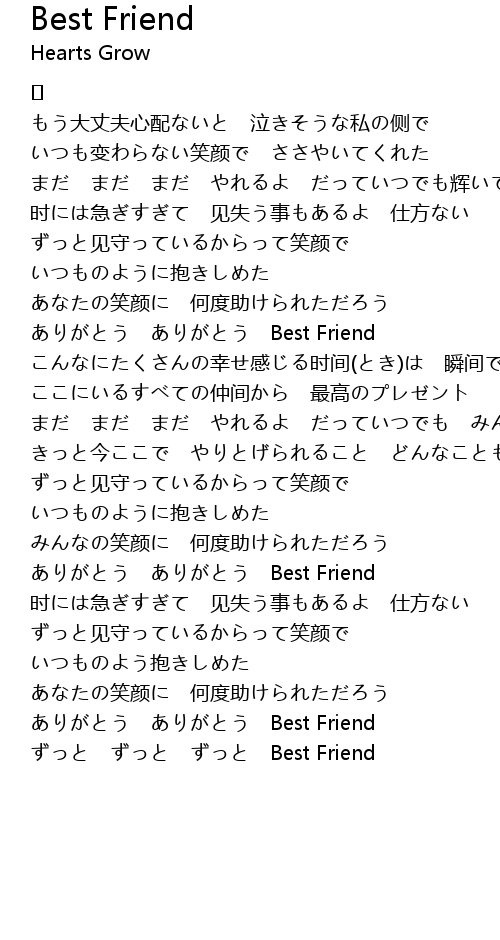 Best Friend
Hearts Grow
[]
もう大丈夫心配ないと　泣きそうな私の侧で
いつも变わらない笑颜で　ささやいてくれた
まだ　まだ　まだ　やれるよ　だっていつでも辉いて
时には急ぎすぎて　见失う事もあるよ　仕方ない
ずっと见守っているからって笑颜で
いつものように抱きしめた
あなたの笑颜に　何度助けられただろう
ありがとう　ありがとう　Best Friend
こんなにたくさんの幸せ感じる时间(とき)は　瞬间で
ここにいるすべての仲间から　最高のプレゼント
まだ　まだ　まだ　やれるよ　だっていつでも　みん
きっと今ここで　やりとげられること　どんなことも
ずっと见守っているからって笑颜で
いつものように抱きしめた
みんなの笑颜に　何度助けられただろう
ありがとう　ありがとう　Best Friend
时には急ぎすぎて　见失う事もあるよ　仕方ない
ずっと见守っているからって笑颜で
いつものよう抱きしめた
あなたの笑颜に　何度助けられただろう
ありがとう　ありがとう　Best Friend
ずっと　ずっと　ずっと　Best Friend